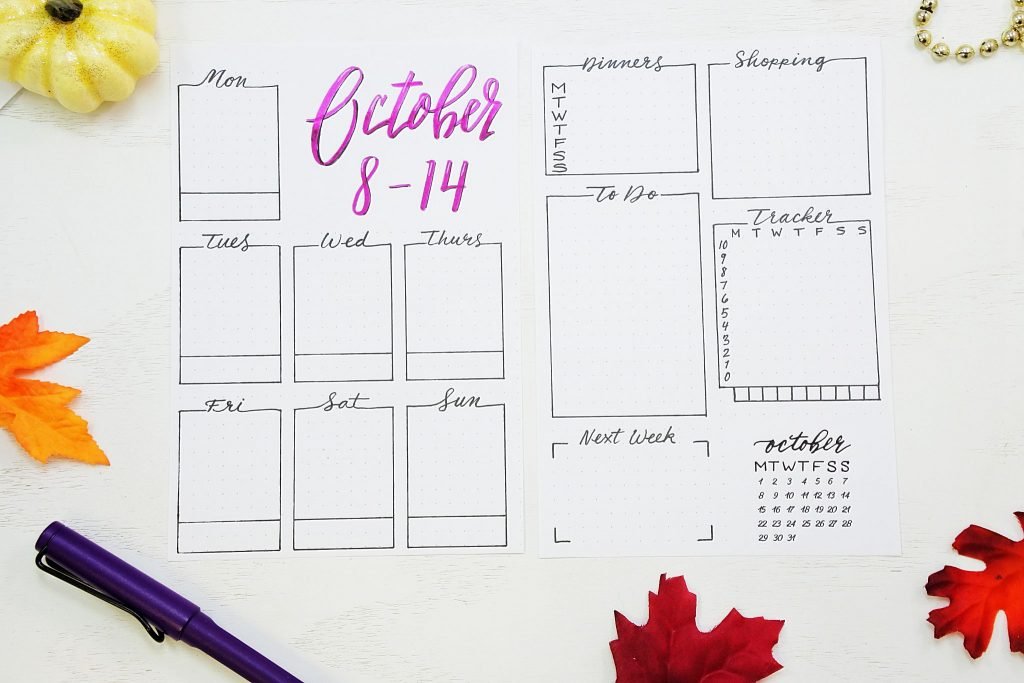 Mon
October
8-14
Tues Wed Thurs
Fri Sat Sun
Dinners
M
T
W
T
F
S
S
Shopping
To Do
Tracker
M T W T F S S
10
9
8
7
6
5
4
3
2
1
0
Next Week
october
M T W T F S S
1 2 3 4 5 6 7
8 9 10 11 12 13 14
15 16 17 18 19 20 21
22 23 24 25 26 27 28
29 30 31